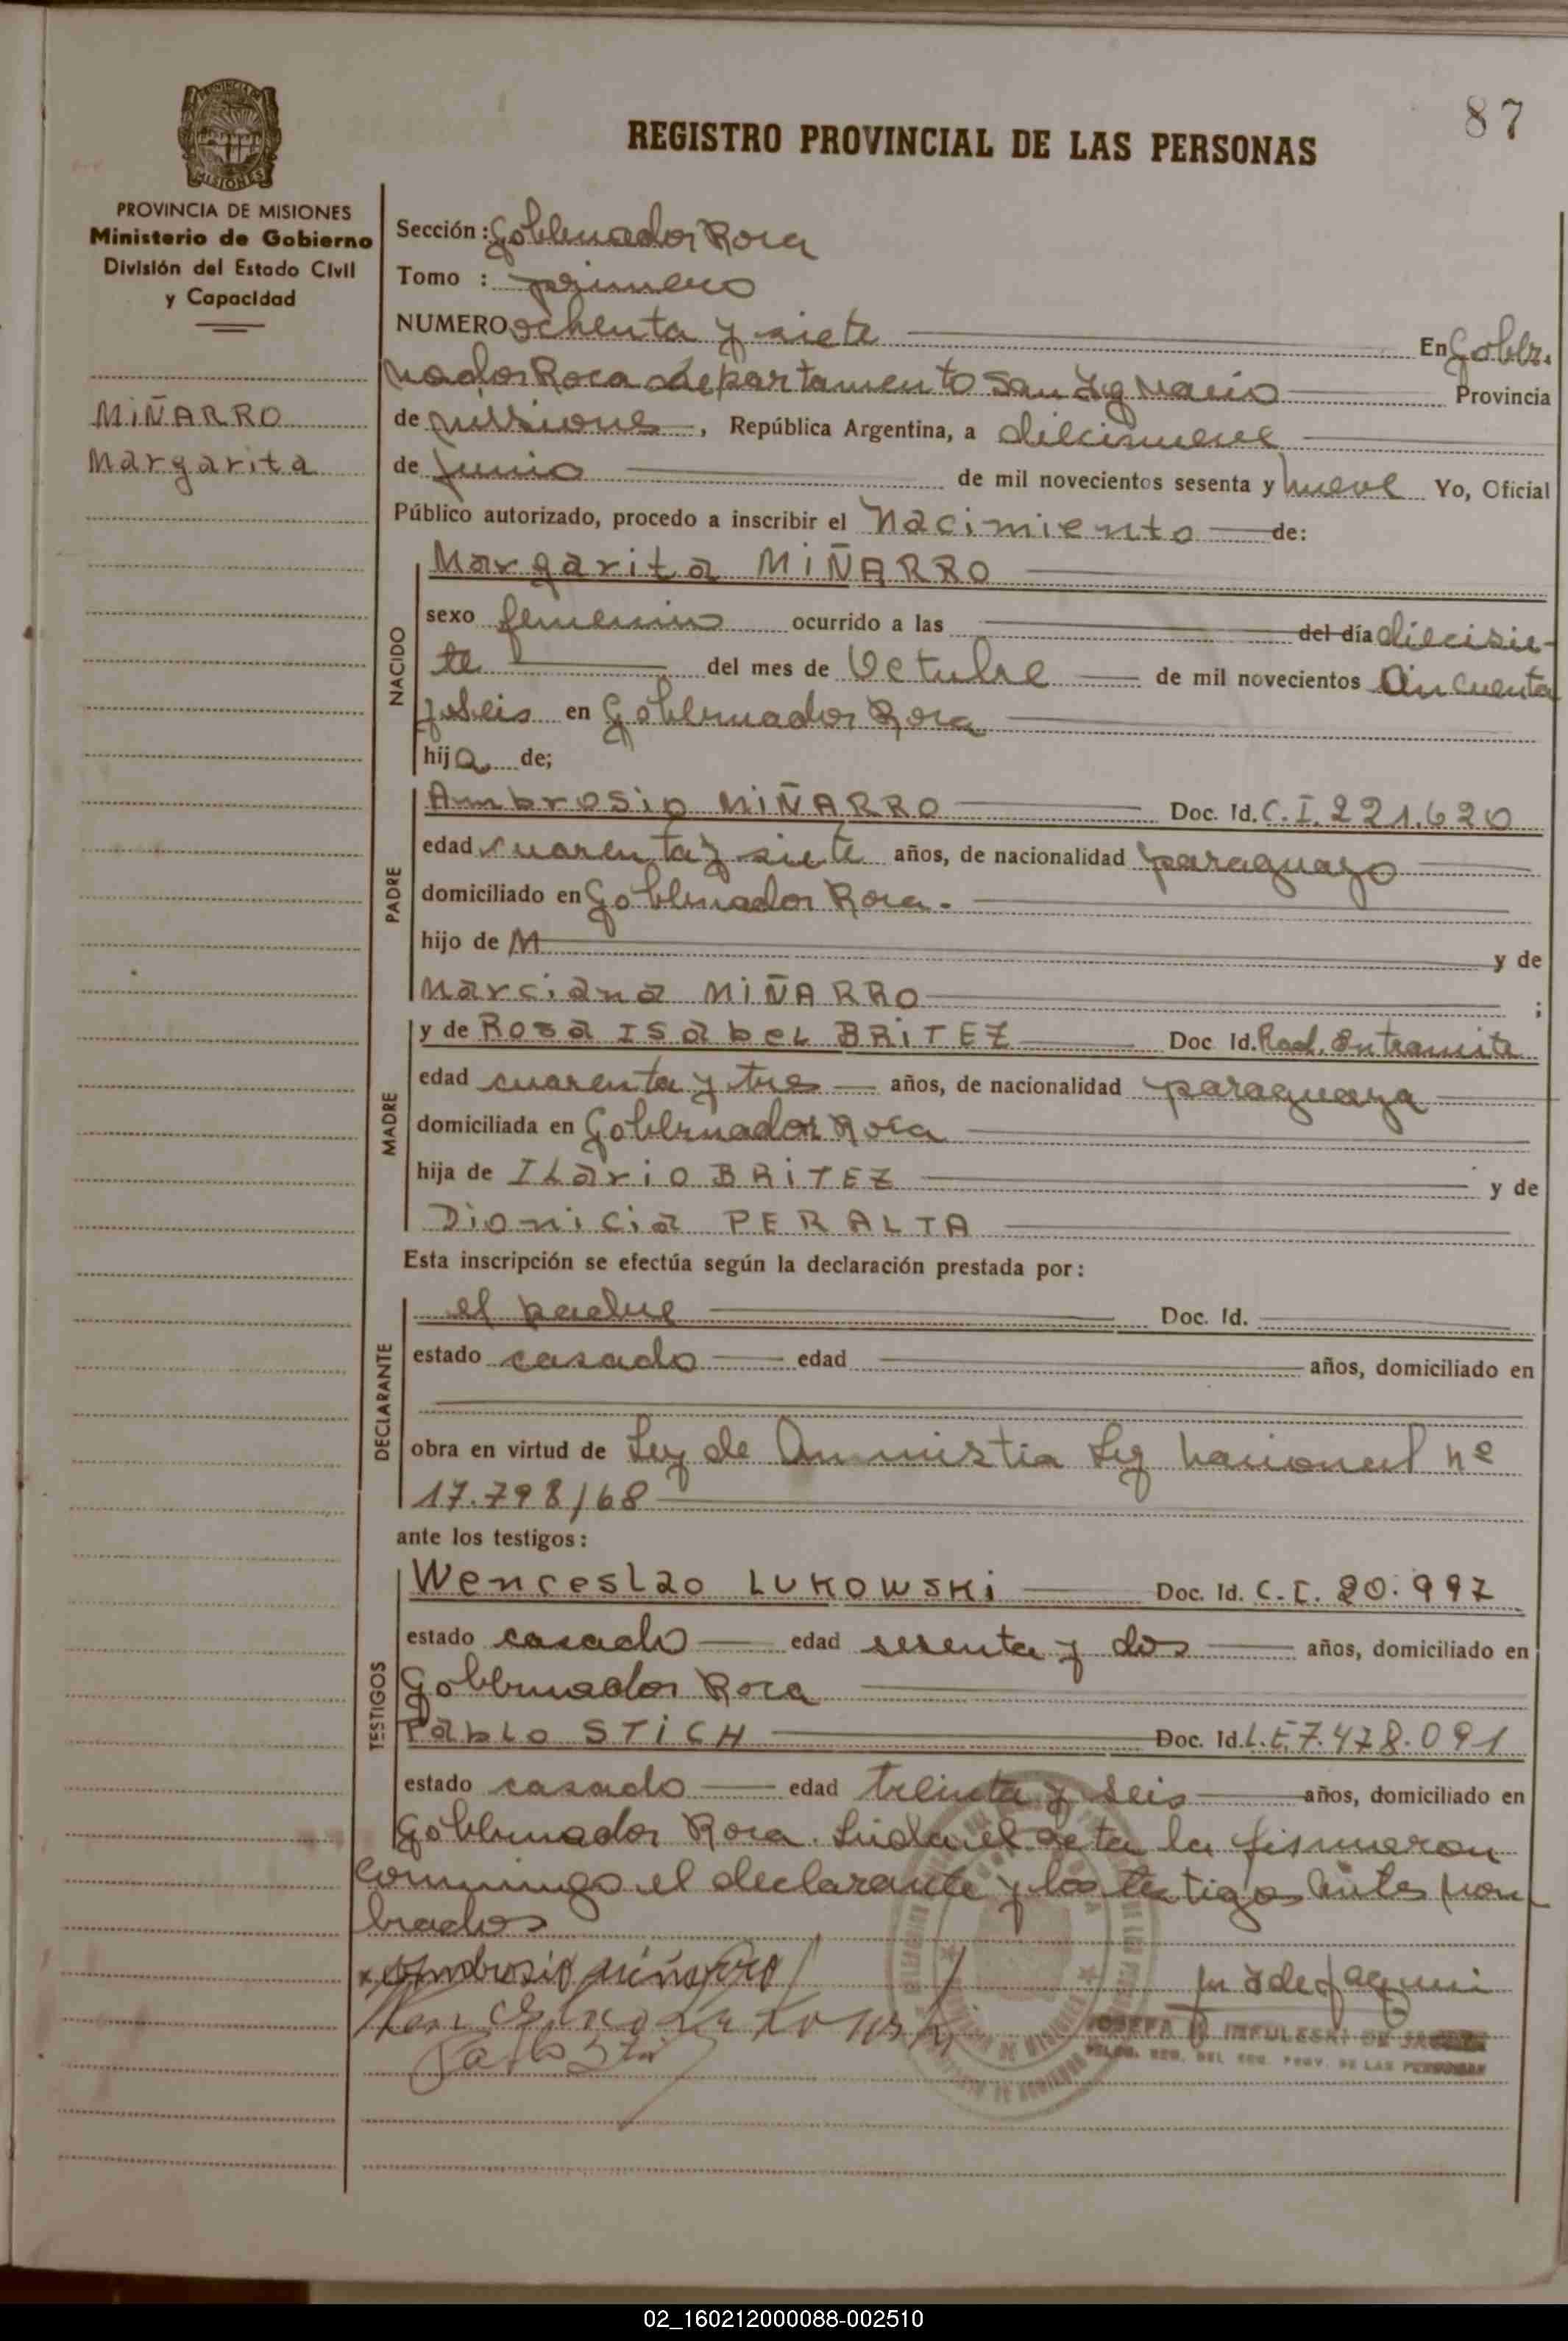 87
REGISTRO PROVINCIAL DE LAS PERSONAS
PROVINCIA DE MISIONES
Ministerio de Gobierno
División del Estado Civil
y Capacidad
MIÑARRO
Margarita
Sección: Gobernador Roca
Tomo : primero
NUMERO ochenta y siete En Gober-
nador Roca departamento San Ignacio Provincia
de misiones, República Argentina, a diecinueve
de Junio de mil novecientos sesenta y nueve Yo, Oficial
Público autorizado, procedo a inscribir el Nacimiento de:
NACIDO
Margarita MIÑARRO
sexo femenino ocurrido a las del día diecisie-
te del mes de Octubre de mil novecientos Cincuenta
y seis en Gobernador Roca
hija de;
PADRE
Ambrosio MIÑARRO Doc. Id. C.I. 221.620
edad cuarenta y siete años, de nacionalidad paraguayo
domiciliado en Gobernador Roca.
hijo de M y de
Marciana MIÑARRO ;
MADRE
y de Rosa Isabel BRITEZ Doc Id. Rad. en tramite
edad cuarenta y tres años, de nacionalidad paraguaya
domiciliada en Gobernador Roca
hija de Ilario BRITEZ y de
Dionicia PERALTA
Esta inscripción se efectúa según la declaración prestada por:
DECLARANTE
el padre Doc. Id.
estado casado edad años, domiciliado en
obra en virtud de Ley de Ammistia Ley nacional nº
17.798/68
ante los testigos:
TESTIGOS
Wenceslao LUKOWSKI Doc. Id. C.I. 20.997
estado casado edad sesenta y dos años, domiciliado en
Gobernador Roca
Pablo STICH Doc. Id. L.E 7.478.091
estado casado edad treinta y seis años, domiciliado en
Gobernador Roca. Leida el acta la firmaron
conmigo el declarante y los testigos antes nom
brados
Ambrosio miñarro
JOSEFA DE JA
02_160212000088-002510